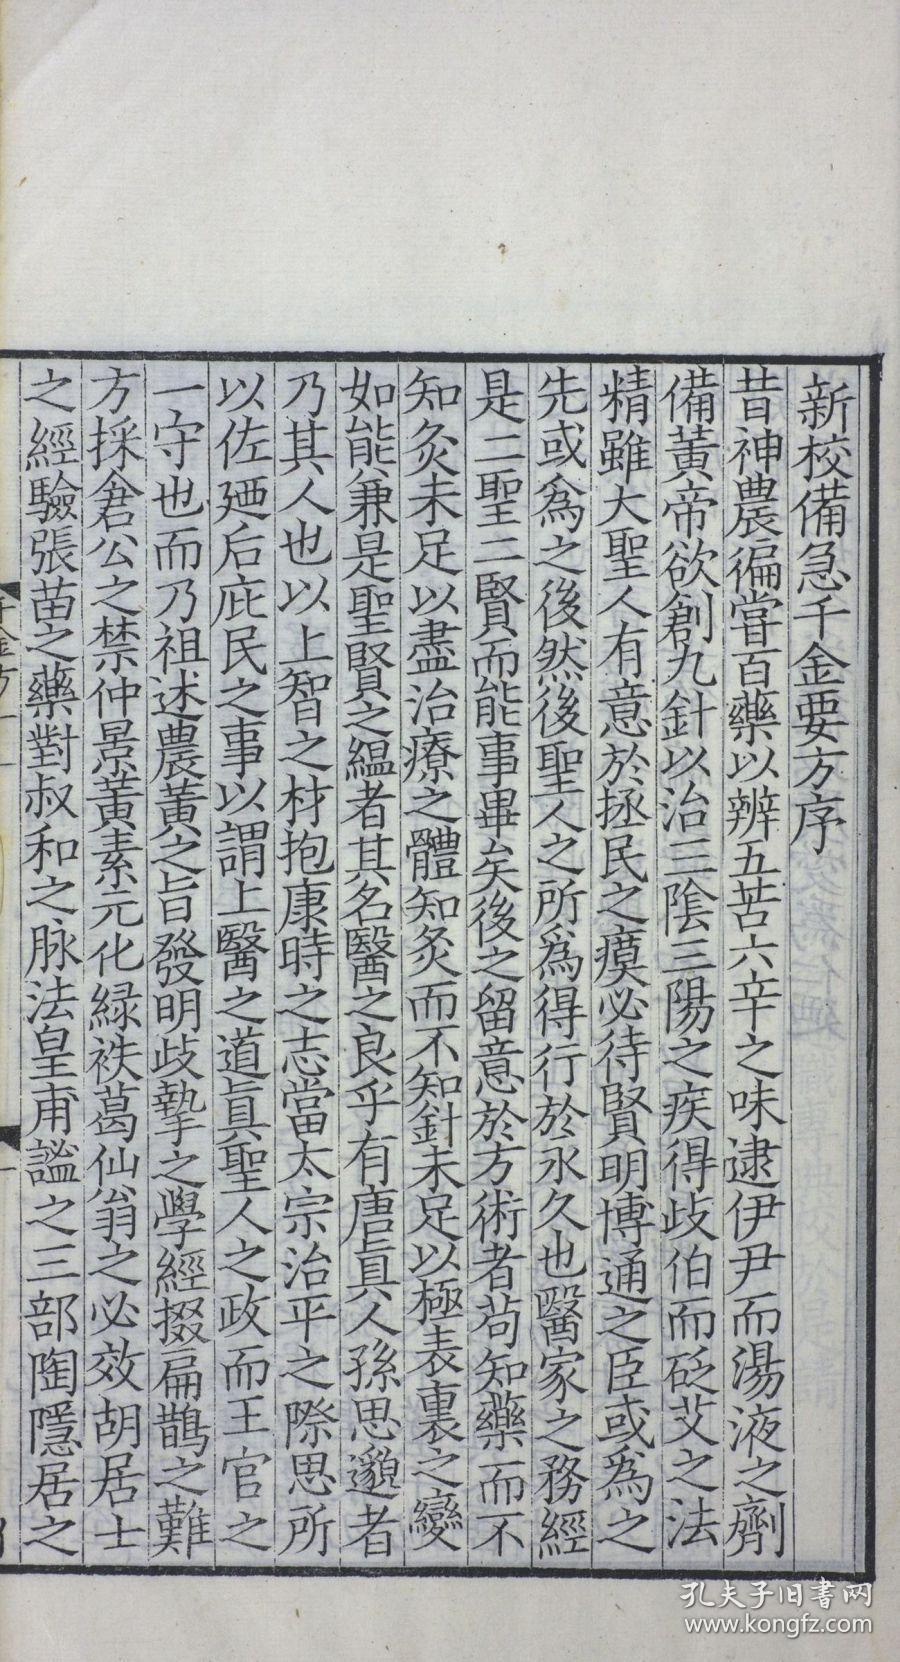 新校備急千金要方序
昔神農徧嘗百藥以辨五苦六辛之味逮伊尹而湯液之劑
備黃帝欲創九針以治三陰三陽之疾得歧伯而砭艾之法
精雖大聖人有意於拯民之瘼必待賢明博通之臣或爲之
先或爲之後然後聖人之所爲得行於永久也醫家之務經
是二聖二賢而能事畢矣後之留意於方術者苟知藥而不
知灸未足以盡治療之體知灸而不知針未足以極表裏之變
如能兼是聖賢之縕者其名醫之良乎有唐眞人孫思邈者
乃其人也以上智之材抱康時之志當太宗治平之際思所
以佐廼后庇民之事以謂上醫之道眞聖人之政而王官之
一守也而乃祖述農黃之旨發明歧摯之學經掇扁鵲之難
方採倉公之禁仲景黃素元化緑袟葛仙翁之必效胡居士
之經驗張苗之藥對叔和之脉法皇甫謐之三部陶隱居之
千金方一
孔夫子旧書网
www.kongfz.com